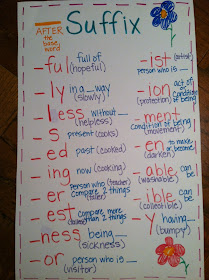 Suffix
AFTER
the base
word
-ful full of
(hopeful)
-ly in a __ way
(slowly)
-less without __
(helpless)
-s present (cooks)
-ed past (cooked)
-ing now (cooking)
-er person who (teacher)
compare 2 things
-est compare more
than 2 things
-ness being __
(sickness)
-or person who is __
(visitor)
-ist
person who is __
-ion act of
condition
(protection) of being
-ment
condition of being
(movement)
-en to make
or become
(darken)
-able can
(washable) be
-ible can
(collectible) be
-y having __
(bumpy)